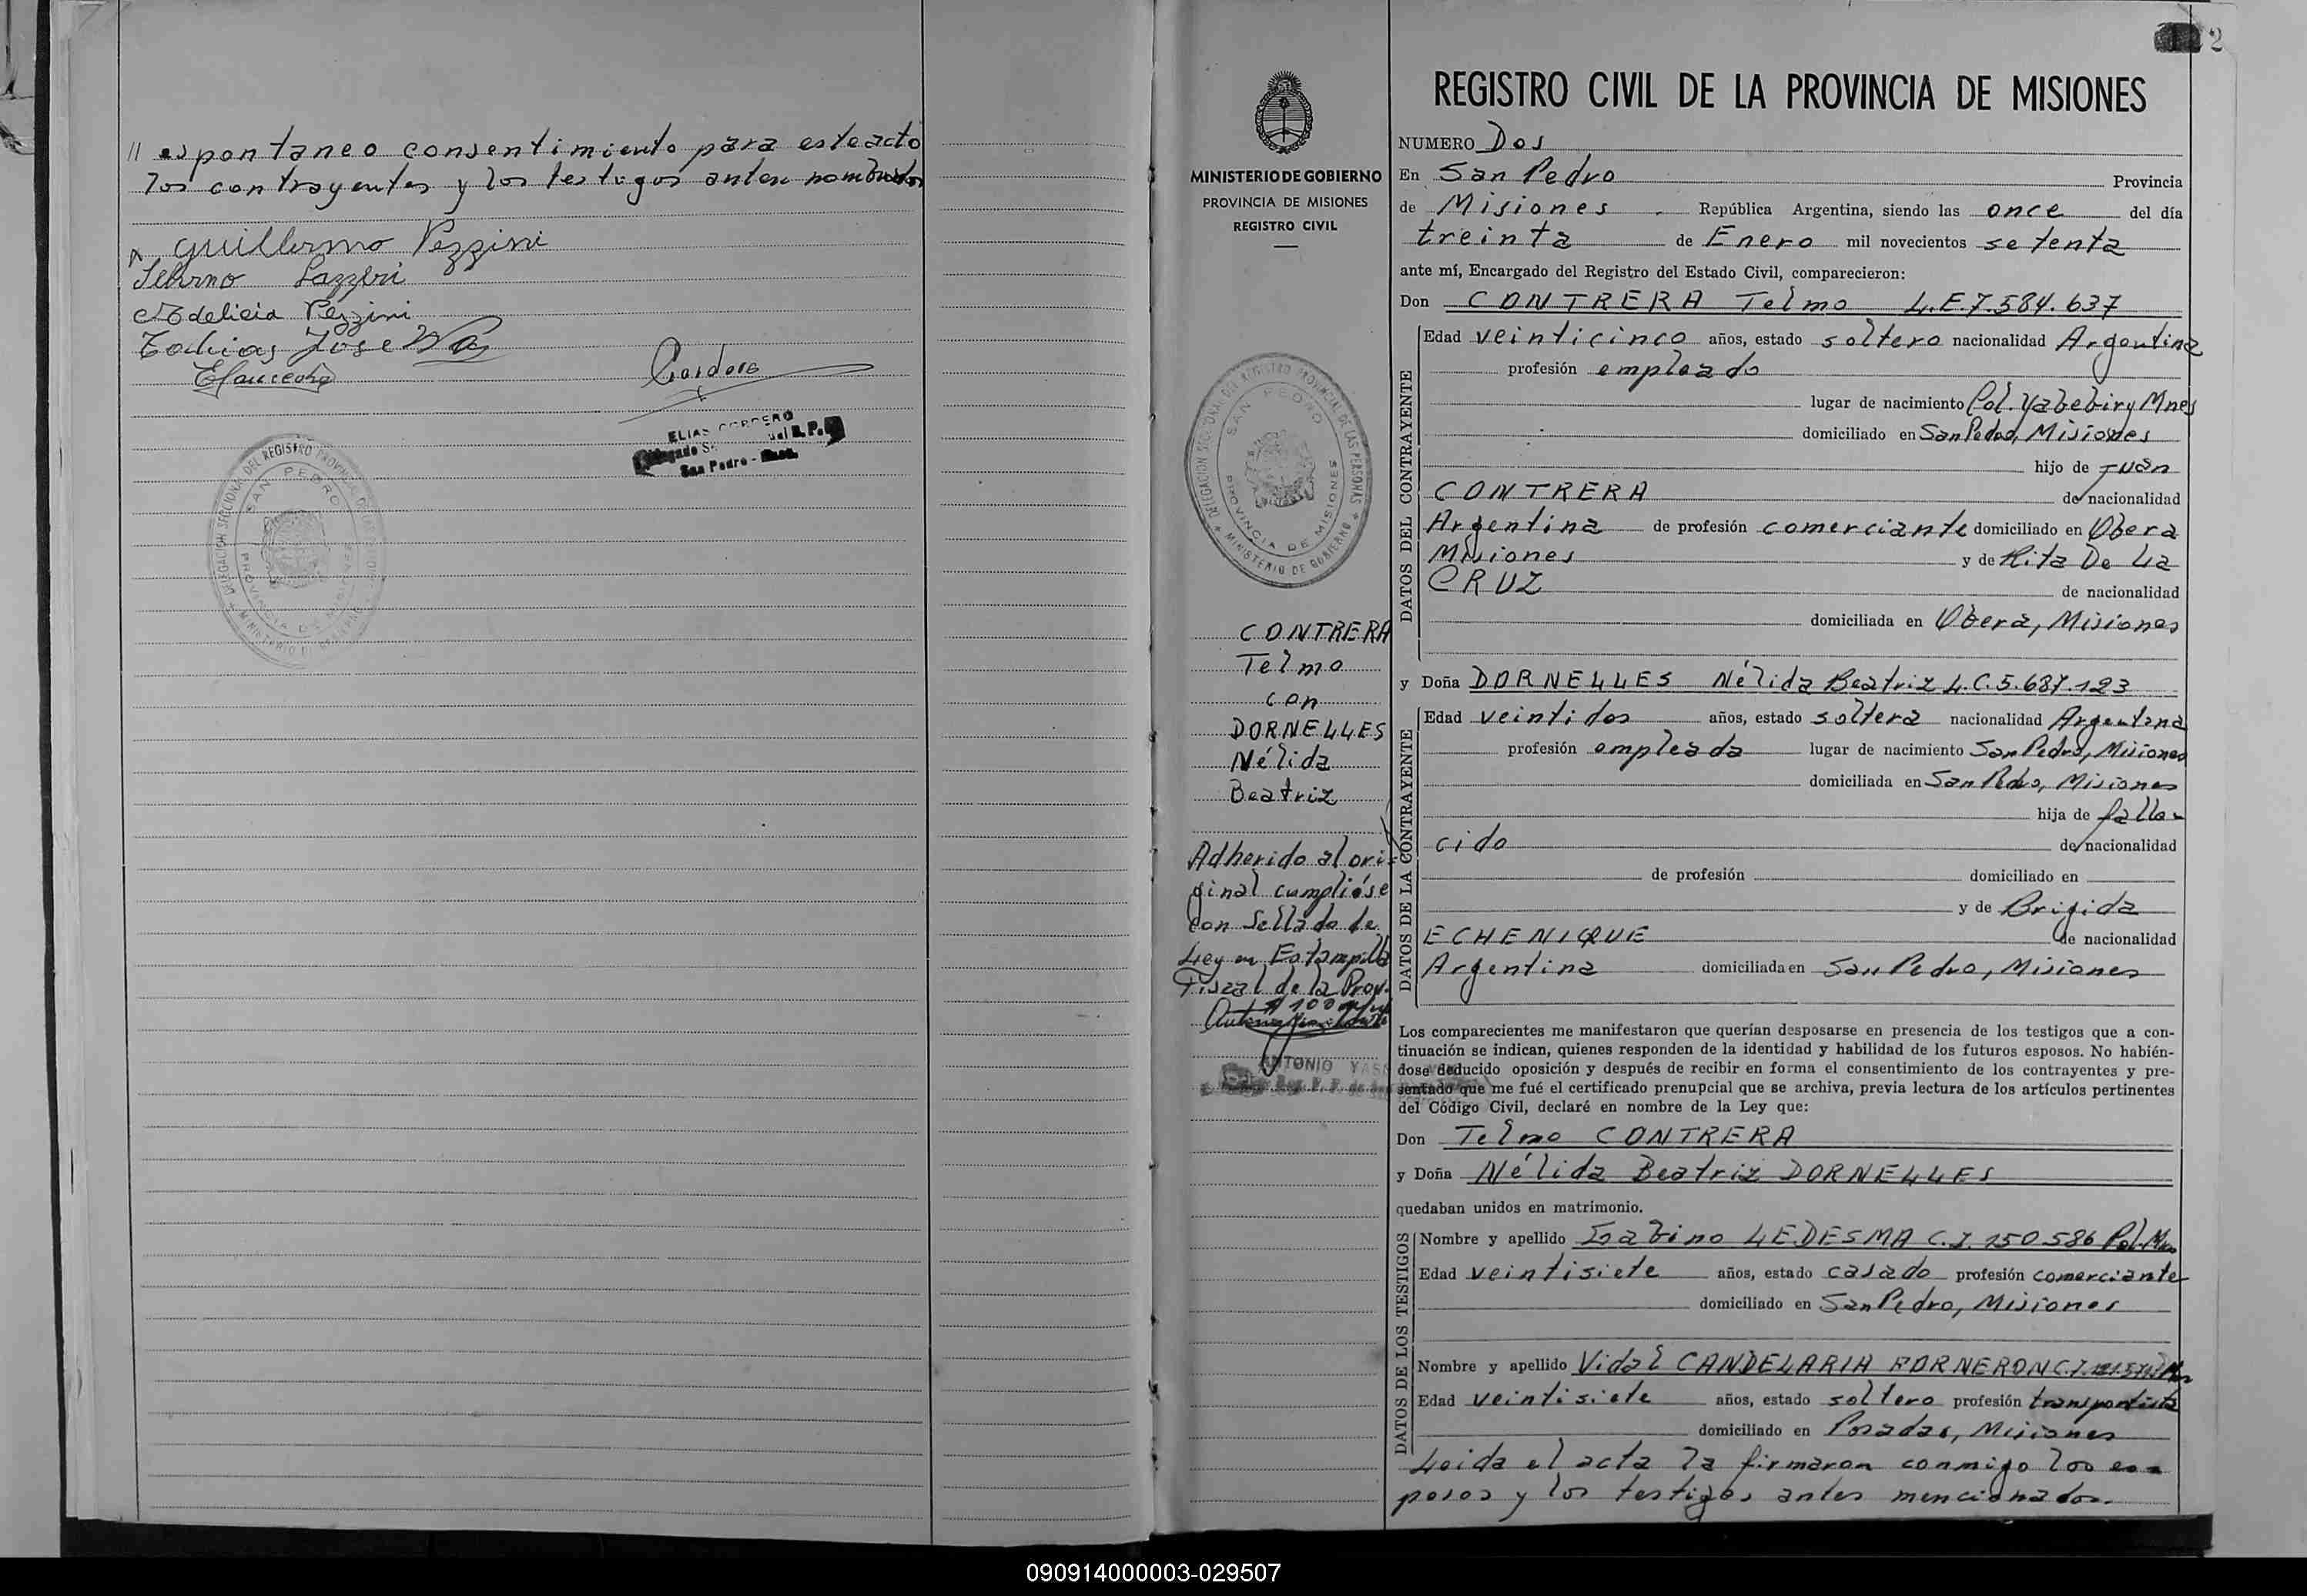 // espontaneo consentimiento para este acto
los contrayentes y los testigos antes nombrados
Guillermo Pezzini
Pezzini
Jose
ELIAS CORDERO
San Pedro -
DELEGACION SECCIONAL DEL REGISTRO PROVINCIAL DE LAS PERSONAS
SAN PEDRO
PROVINCIA DE MISIONES
MINISTERIO DE GOBIERNO
2
MINISTERIO DE GOBIERNO
PROVINCIA DE MISIONES
REGISTRO CIVIL
DELEGACION SECCIONAL DEL REGISTRO PROVINCIAL DE LAS PERSONAS
SAN PEDRO
PROVINCIA DE MISIONES
MINISTERIO DE GOBIERNO
CONTRERA
Telmo
con
DORNELLES
Nélida
Beatriz
Adherido al ori-
ginal cumplióse
con Sellado de
Ley en Estampilla
Fiscal de la Prov.
$ 100
ANTONIO
REGISTRO CIVIL DE LA PROVINCIA DE MISIONES
NUMERO Dos
En San Pedro Provincia
de Misiones. República Argentina, siendo las once del día
treinta de Enero mil novecientos setenta
ante mí, Encargado del Registro del Estado Civil, comparecieron:
Don CONTRERA Telmo L.E.7.584.637
DATOS DEL CONTRAYENTE
Edad veinticinco años, estado soltero nacionalidad Argentina
profesión empleado
lugar de nacimiento Col. Yabebiry Mnes
domiciliado en San Pedro, Misiones
hijo de Juan
CONTRERA de nacionalidad
Argentina de profesión comerciante domiciliado en Obera
Misiones y de Rita De La
CRUZ de nacionalidad
domiciliada en Obera, Misiones
y Doña DORNELLES Nélida Beatriz L.C.5.687.123
DATOS DE LA CONTRAYENTE
Edad veintidos años, estado soltera nacionalidad Argentina
profesión empleada lugar de nacimiento San Pedro, Misiones
domiciliada en San Pedro, Misiones
hija de falle-
cido de nacionalidad
de profesión domiciliado en
y de Brigida
ECHENIQUE de nacionalidad
Argentina domiciliada en San Pedro, Misiones
Los comparecientes me manifestaron que querían desposarse en presencia de los testigos que a con-
tinuación se indican, quienes responden de la identidad y habilidad de los futuros esposos. No habién-
dose deducido oposición y después de recibir en forma el consentimiento de los contrayentes y pre-
sentado que me fué el certificado prenupcial que se archiva, previa lectura de los artículos pertinentes
del Código Civil, declaré en nombre de la Ley que:
Don Telmo CONTRERA
y Doña Nélida Beatriz DORNELLES
quedaban unidos en matrimonio.
DATOS DE LOS TESTIGOS
Nombre y apellido Sabino LEDESMA C.I. 150.586 Pol. Mnes
Edad veintisiete años, estado casado profesión comerciante
domiciliado en San Pedro, Misiones
Nombre y apellido Vidal CANDELARIA BORNERON C.I.
Edad veintisiete años, estado soltero profesión transportista
domiciliado en Posadas, Misiones
Leida el acta la firmaron conmigo los es-
posos y los testigos antes mencionados.
090914000003-029507